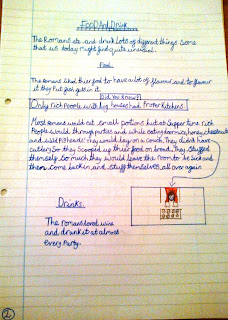 Food And Drink
The Romans ate and drunk lots of different things some
that us today might find quite unusual.
Food
The romans liked thier food to have a lot of flavour and to flavour
it they put fish guts in it.
Did You Know?
Only rich People with big houses had Proper Kitchens
Most romans would eat small potions but at supper time rich
People would through parties and while eating dormice, honey, chestnuts
and wild Pig heads they would lay on a couch. They didn't have
cutlery so they scooped up thier food on bread. They stuffed
themselfs so much they would leave the room to be sick and
then come back in and stuff themselves all over again
Drinks
The romans loved wine
and drunk it at almost
every Party.